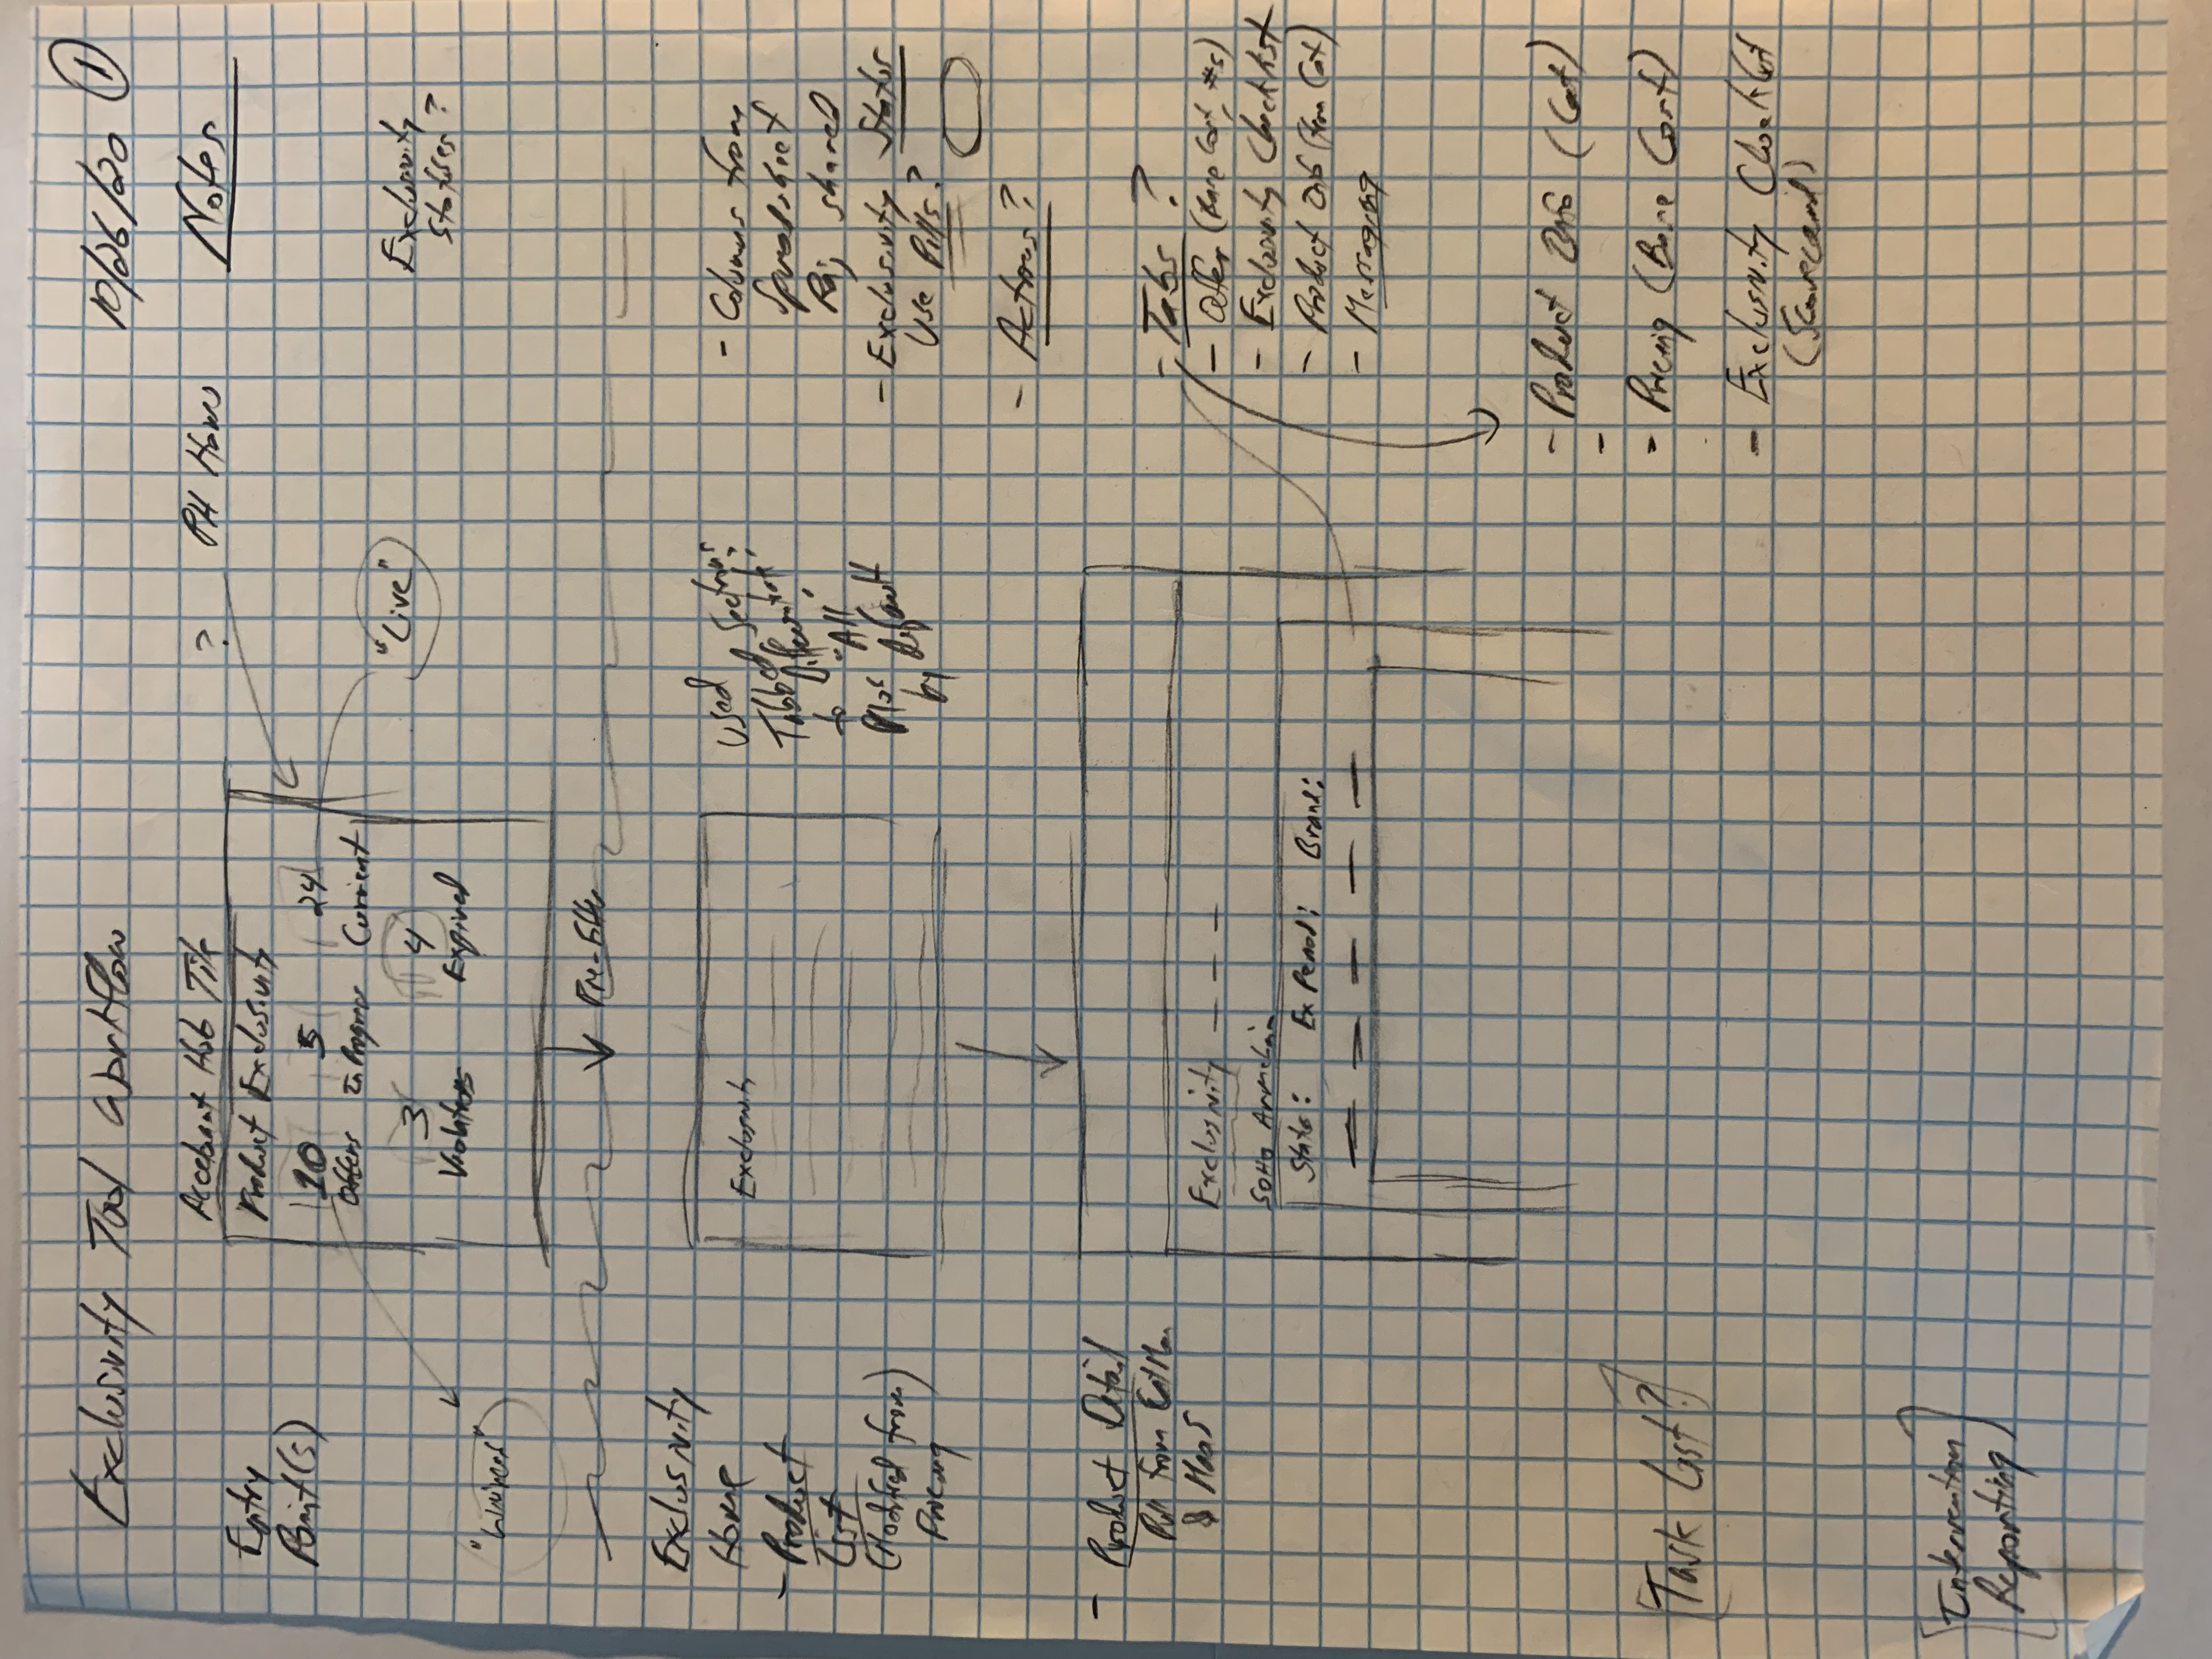 Exclusivity Tool Workflow
10/26/20 ①
Notes
Entry
Point(s)
Accelerant Hub Tile
Product Exclusivity
10 5 24
Offers In Progress Current
3 4
Violations Expired
? PH Home
"Live"
Exclusivity
Statuses?
Pre-filter
Exclusivity
Home
- Product
List
(Modified from
Pricing)
Exclusivity
Used
Tabbed Sections
to
"All
by default
- Columns from
Spreadsheet
Raj shared
- Exclusivity Status
Use Pills?
- Actions?
- Product Detail
Pull from
Exclusivity - - - -
State: Ex Period: Brand:
- Tabs?
- Offer (Base Cost, #s)
- Exclusivity Checklist
- Product Info (from Cat)
- Messaging
- Product Info (Cat)
-
- Pricing (Base Cost)
- Exclusivity Checklist
(Scorecard)
[Task List?]
[Intervention
Reporting]